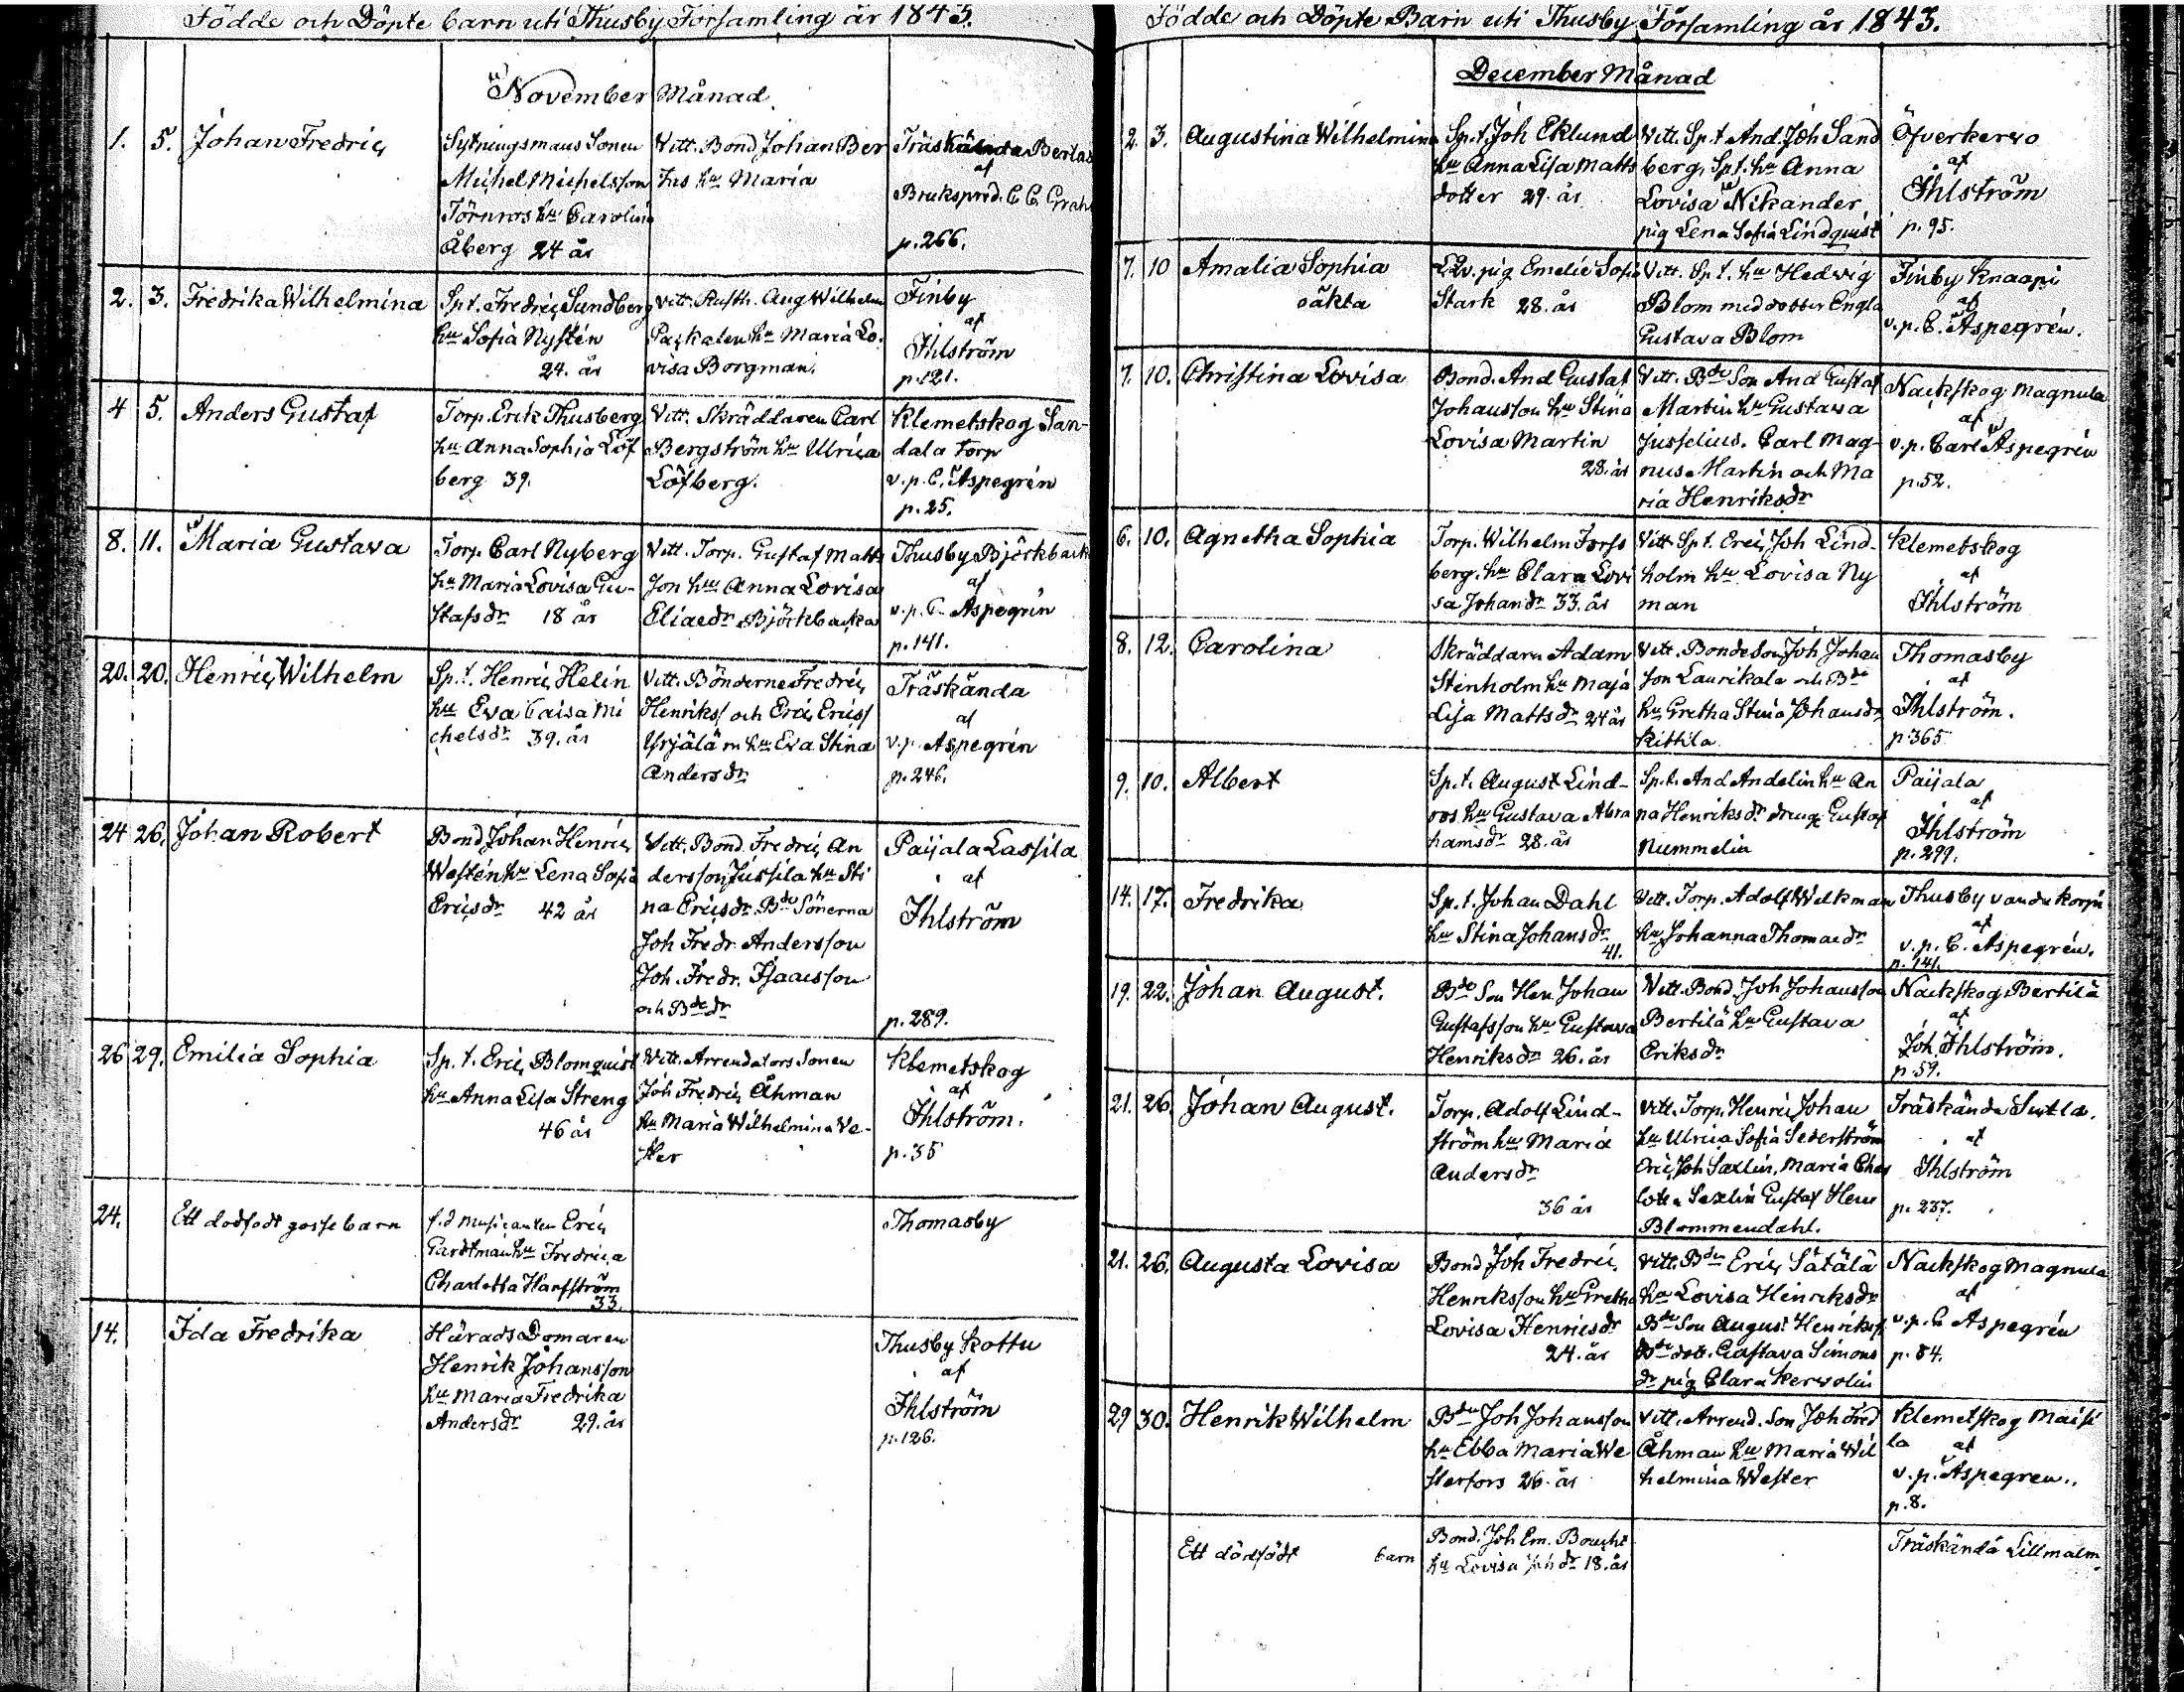 Födde och Döpte barn uti Thusby Församling år 1843.
November Månad
1. 5. Johan Fredric
Sytningsmans Sonen
Michel Michelsson
Törnroos hu Carolina
Åberg 24 år
Vitt. Bond Johan Ber
tas hu Maria
Träskända Bertas
af
Brukspred. C C Grah
p. 266.
2. 3. Fredrika Wilhelmina
Spt. Fredric Sundberg
hu Sofia Nystén
24. år
Vitt. Rusth. Aug Wilhelm
Packalen hu Maria Lo.
visa Borgman.
Finby
af
Ihlström
p. 121.
4 5. Anders Gustaf
Torp. Erik Thusberg
hu Anna Sophia Löf
berg 39.
Vitt. Skräddaren Carl
Bergström hu Ulrica
Löfberg.
Klemetskog San-
dala torp
v.p. C. Aspegrén
p. 25.
8. 11. Maria Gustava
Torp. Carl Nyberg
hu Maria Lovisa Gu-
stafsdr 18 år
Vitt. Torp. Gustaf Matts
son hu Anna Lovisa
Eliaedr Björkbacka
Thusby Björkback
af
v.p. C. Aspegrén
p. 141.
20. 20. Henric Wilhelm
Sp.t. Henric Helin
hu Eva Caisa Mi
chelsdr 39. år
Vitt. Bönderne Fredric
Henrikss och Eric Ericss
Yrjälä m hu Eva Stina
Andersdr
Träskända
af
v.p. Aspegrén
p. 246.
24 26. Johan Robert
Bond Johan Henric
Westén hu Lena Sofia
Ericsdr 42 år
Vitt. Bond. Fredric An
dersson Jussila hu Sti
na Ericsdr. Bde Sönerna
Joh Fredr. Andersson
Joh. Fredr. Isaacsson
och Bde dr
Paijala Lassila
af
Ihlström
p. 289.
26 29. Emilia Sophia
Sp.t. Eric Blomquist
hu Anna Lisa Streng
46 år
Vitt. Arrendators Sonen
Joh Fredric Åhman
hu Maria Wilhelmina We-
ster
Klemetskog
af
Ihlström.
p. 35
24. Ett dödfödt gosse barn
f.d Musicanten Eric
Gardtman hu Fredrica
Charlotta Harfström
33.
Thomasby
14. Ida Fredrika
Härads Domaren
Henrik Johansson
hu Maria Fredrika
Andersdr 29. år
Thusby Kottu
af
Ihlström
p. 126.
Födde och Döpte Barn uti Thusby Församling år 1843.
December Månad
2. 3. Augustina Wilhelmina
Sp.t. Joh Eklund
hu Anna Lisa Matts
dotter 29. år
Vitt. Sp.t And. Joh Sand
berg, Spt. hu Anna
Lovisa Nikander
pig Lena Sofia Lindquist
Öfverkervo
af
Ihlström
p. 95.
7. 10 Amalia Sophia
oäkta
pig Emelie Sofi
Stark 28. år
Vitt. Sp t. hu Hedvig
Blom med dotter Engla
Gustava Blom
Finby Knaapi
af
v.p. C. Aspegrén.
7. 10. Christina Lovisa
Bond. And Gustaf
Johansson hu Stina
Lovisa Martin
28. år
Vitt. Bde Son And Gustaf
Martin hu Gustava
Jusselius. Carl Mag-
nus Martin och Ma
ria Henriksdr
Nackskog Magnula
af
v.p. Carl Aspegrén
p. 52.
6. 10. Agnetha Sophia
Torp. Wilhelm Forss
berg. hu Clara Lovi
sa Johandr 33. år
Vitt Spt. Eric Joh Lind-
holm hu Lovisa Ny
man
Klemetskog
af
Ihlström
8. 12. Carolina
Skräddaren Adam
Stenholm hu Maja
Lisa Mattsdr 24 år
Vitt. Bonde Son Joh Johan
son Laurikala och Bde
hu Gretha Stina Johansdr
Kittila
Thomasby
af
Ihlström.
p 365
9. 10. Albert
Sp.t. August Lind-
roos hu Gustava Abra
hamsdr 28. år
Sp.t. And Andelin hu An
na Henriksdr dreng Gustaf
Nummelin
Paijala
af
Ihlström
p. 299.
14. 17. Fredrika
Sp.t. Johan Dahl
hu Stina Johansdr
41.
Vitt. Torp. Adolf Welkman
hu Johanna Thomaedr
Thusby
af
v.p. C. Aspegrén.
p. 141.
19. 22. Johan August.
Bde Son Hen. Johan
Gustafsson hu Gustava
Henriksdr 26. år
Vitt. Bond. Joh Johansson
Bertilä hu Gustava
Eriksdr
Nackskog Bertilä
af
Joh. Ihlström.
p. 59.
21. 26. Johan August.
Torp. Adolf Lind-
ström hu Maria
Andersdr
36 år
Vitt. Torp. Henric Johan
hu Ulrica Sofia Sederström
Eric Joh Saxlin, Maria Char
lotta Saxlin Gustaf Hen
Blommendahl.
Träskända Sutla.
af
Ihlström
p. 237.
21. 26. Augusta Lovisa
Bond Joh Fredric
Henriksson hu Gretha
Lovisa Henricsdr
24. år
Vitt. Bden Eric Sätälä
hu Lovisa Henriksdr
Bde Son August Henrikss
Bde dott. Gustava Simons
dr pig Clara Kervolin
Nackskog Magnula
af
v.p. C Aspegrén
p. 54.
29 30. Henrik Wilhelm
Bden Joh Johansson
hu Ebba Maria We
sterfors 26. år
Vitt. Arrend. Son Joh Fred
Åhman hu Maria Wil
helmina Wester
Klemetskog Maisi
la af
v.p. Aspegren.
p. 8.
Ett dödfödt barn
Bond. Joh Em. Boucht
hu Lovisa dr 18. år
Träskända Lillmalm